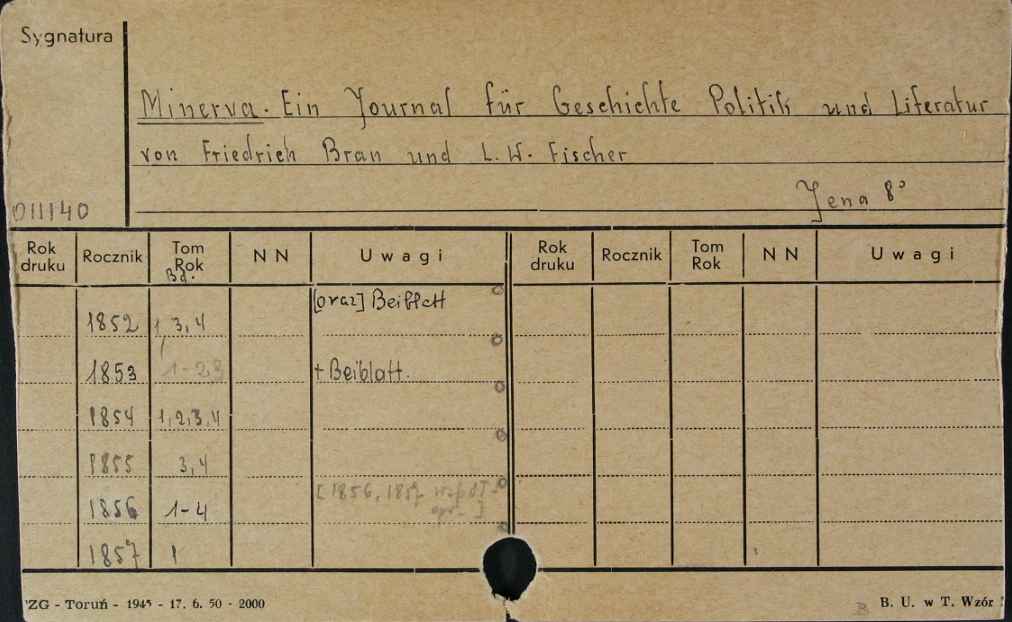 Sygnatura
Minerva. Ein Journal für Geschichte Politik und Literatur
von Friedrich Bran und L. W. Fischer
Jena 8°
011140
Rok druku Rocznik Tom Rok Bd. N N Uwagi Rok druku Rocznik Tom Rok N N Uwagi
[oraz] Beiblatt
1852 1, 3, 4
1853 1-2,3 + Beiblatt.
1854 1,2,3,4
1855 3,4
[1856, 1857
1856 1-4 ]
1857 1
ZG - Toruń - 1945 - 17. 6. 50 - 2000
B B. U. w T. Wzór